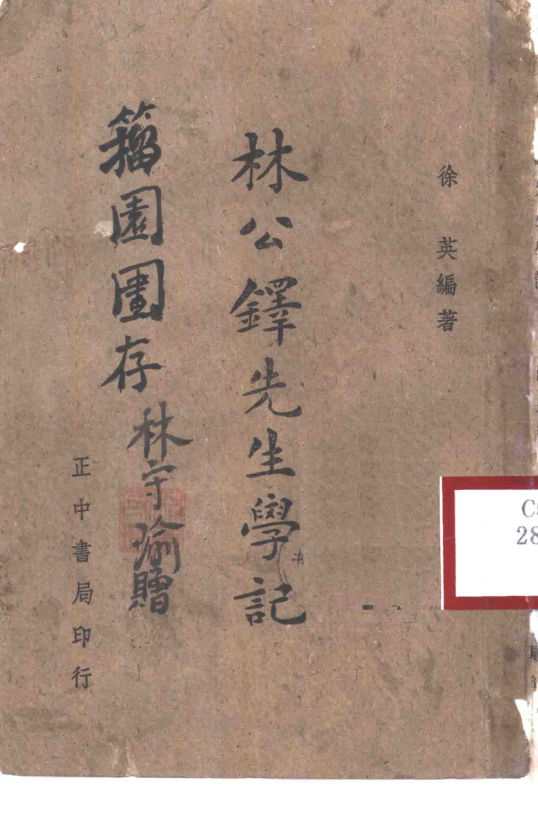 徐英編著
林公鐸先生學記
籀園圕存
林守瑜贈
正中書局印行
28